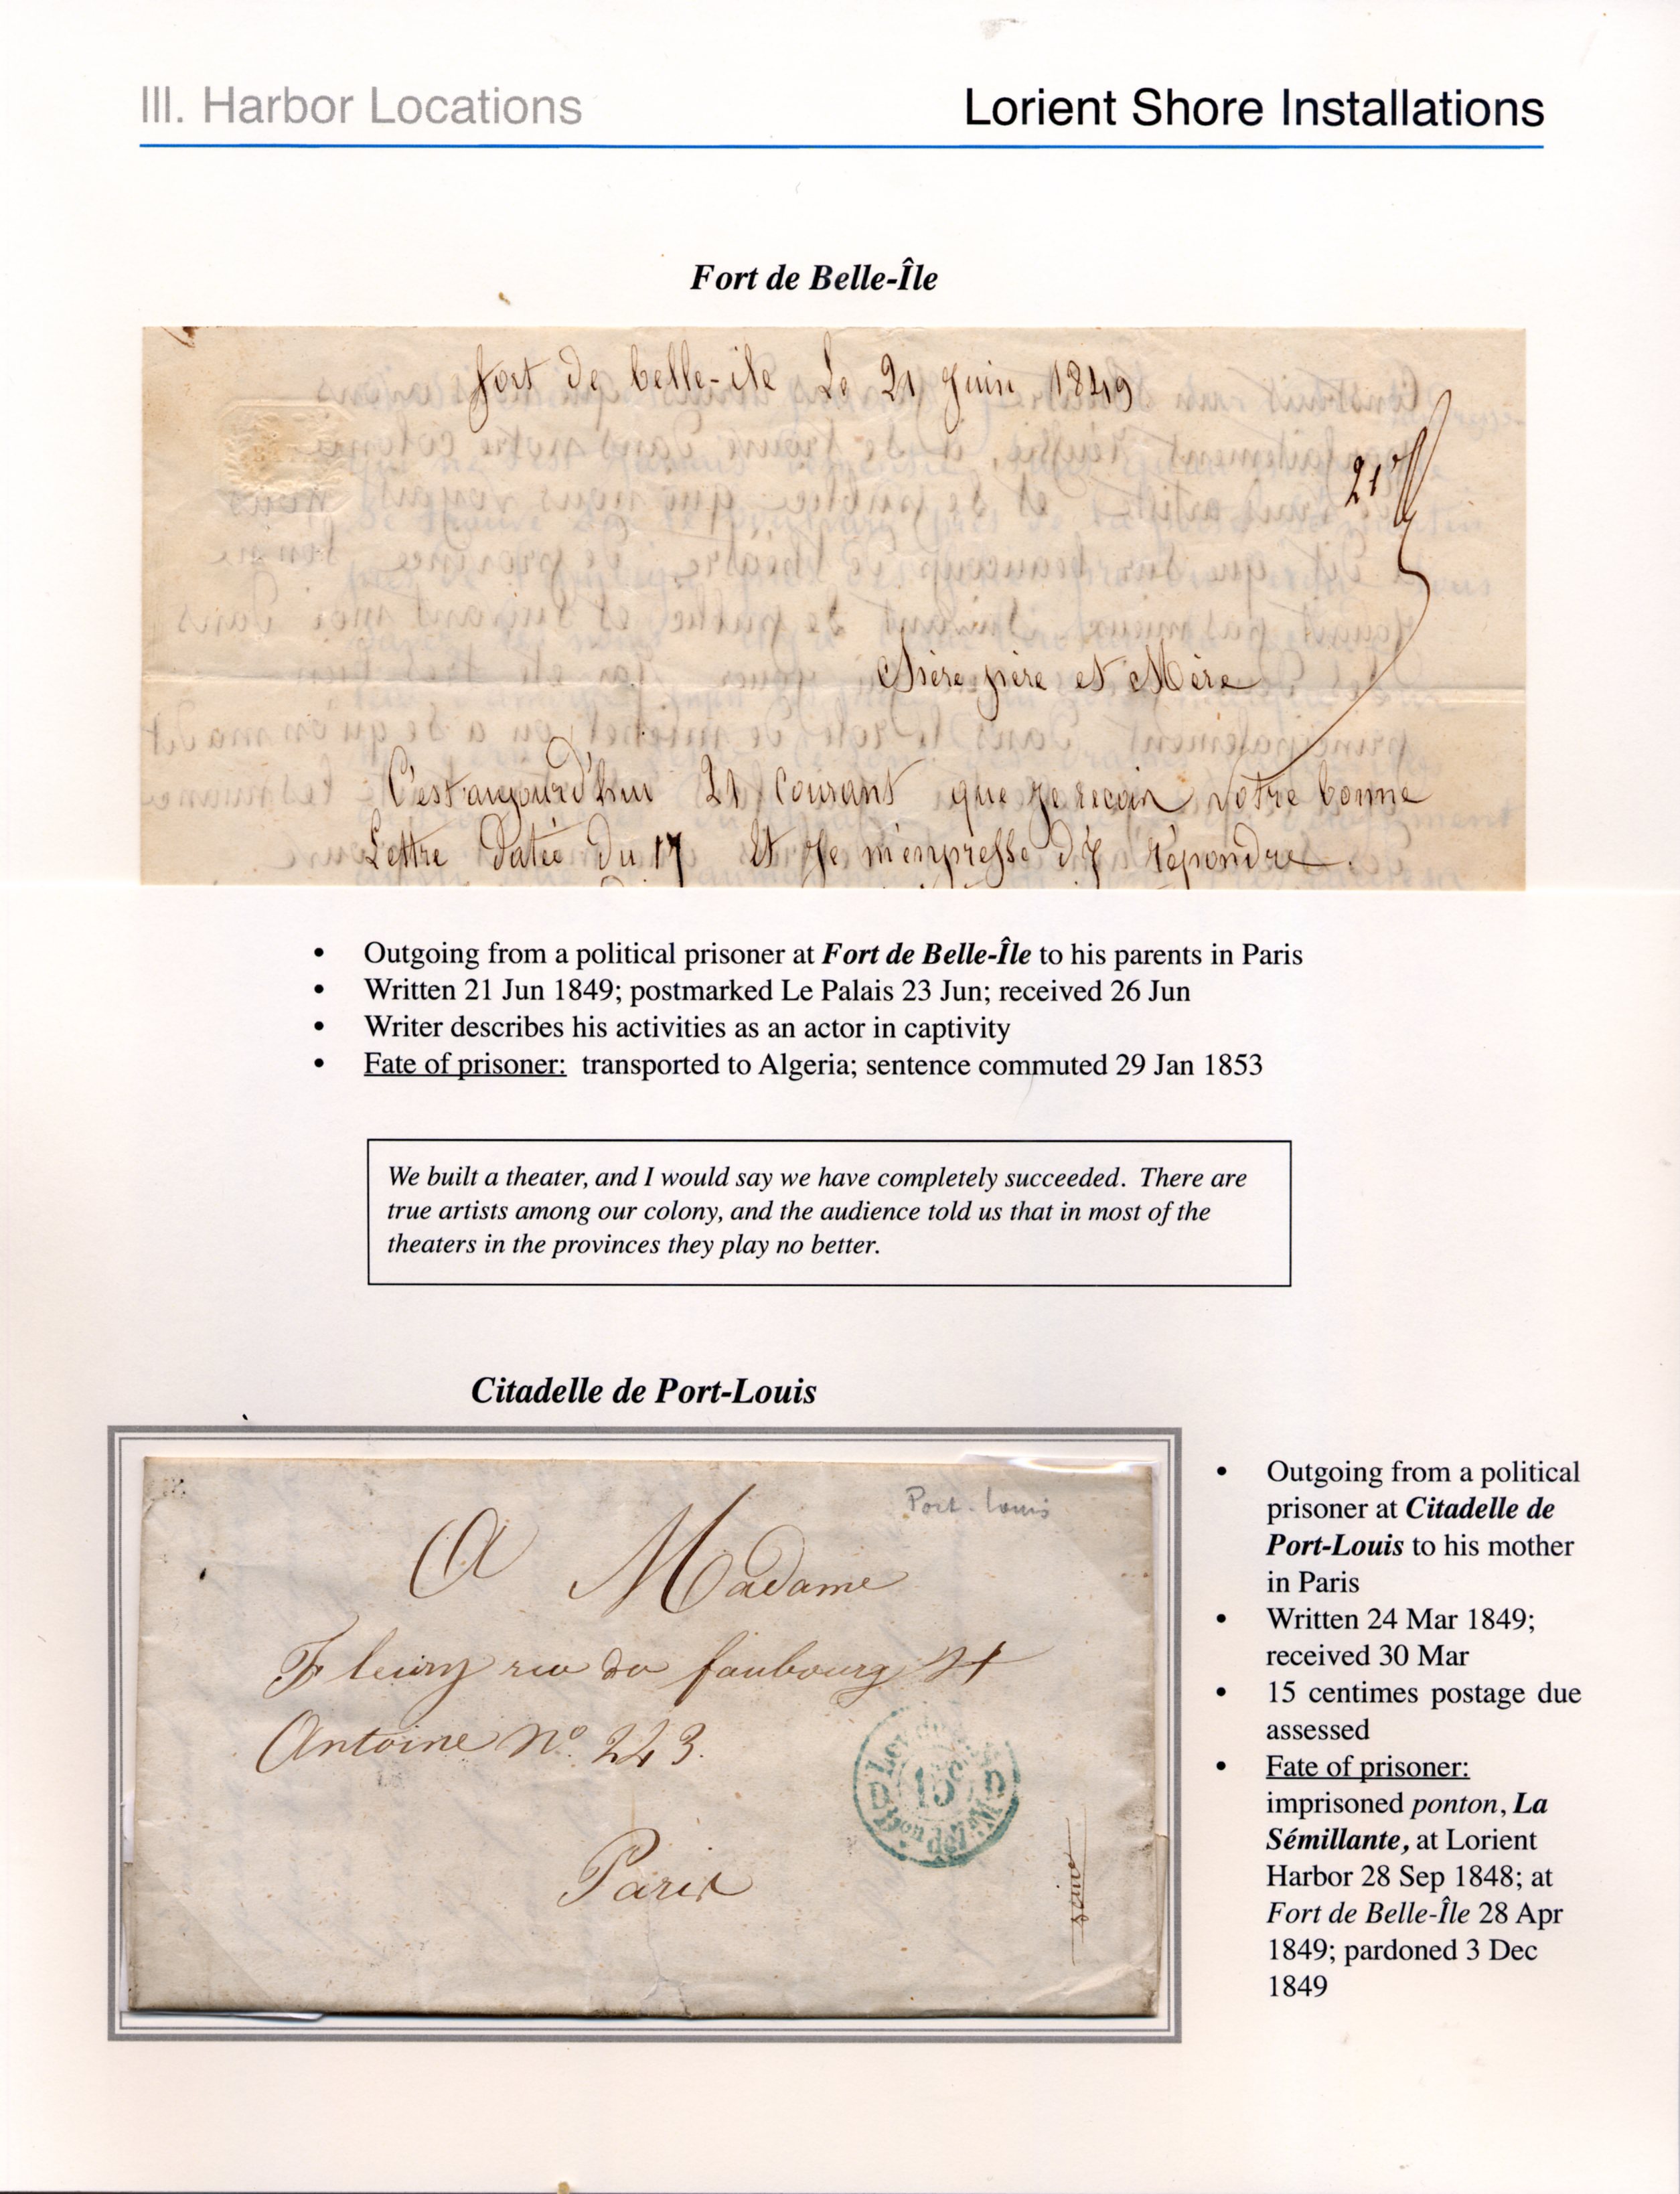 III. Harbor Locations
Lorient Shore Installations
Fort de Belle-Île
fort de belle-ile Le 21 Juin 1849
21
Chère père et Mère
C'est aujourd'hui 21 Courant que je recoir votre bonne
Lettre datée du 17 Et je m'enpresse d'y répondre.
• Outgoing from a political prisoner at Fort de Belle-Île to his parents in Paris
• Written 21 Jun 1849; postmarked Le Palais 23 Jun; received 26 Jun
• Writer describes his activities as an actor in captivity
• Fate of prisoner: transported to Algeria; sentence commuted 29 Jan 1853
We built a theater, and I would say we have completely succeeded. There are
true artists among our colony, and the audience told us that in most of the
theaters in the provinces they play no better.
Citadelle de Port-Louis
Port-Louis
A Madame
Fleury rue du faubourg St
Antoine No. 223.
Paris
15c
seine
• Outgoing from a political
prisoner at Citadelle de
Port-Louis to his mother
in Paris
• Written 24 Mar 1849;
received 30 Mar
• 15 centimes postage due
assessed
• Fate of prisoner:
imprisoned ponton, La
Sémillante, at Lorient
Harbor 28 Sep 1848; at
Fort de Belle-Île 28 Apr
1849; pardoned 3 Dec
1849